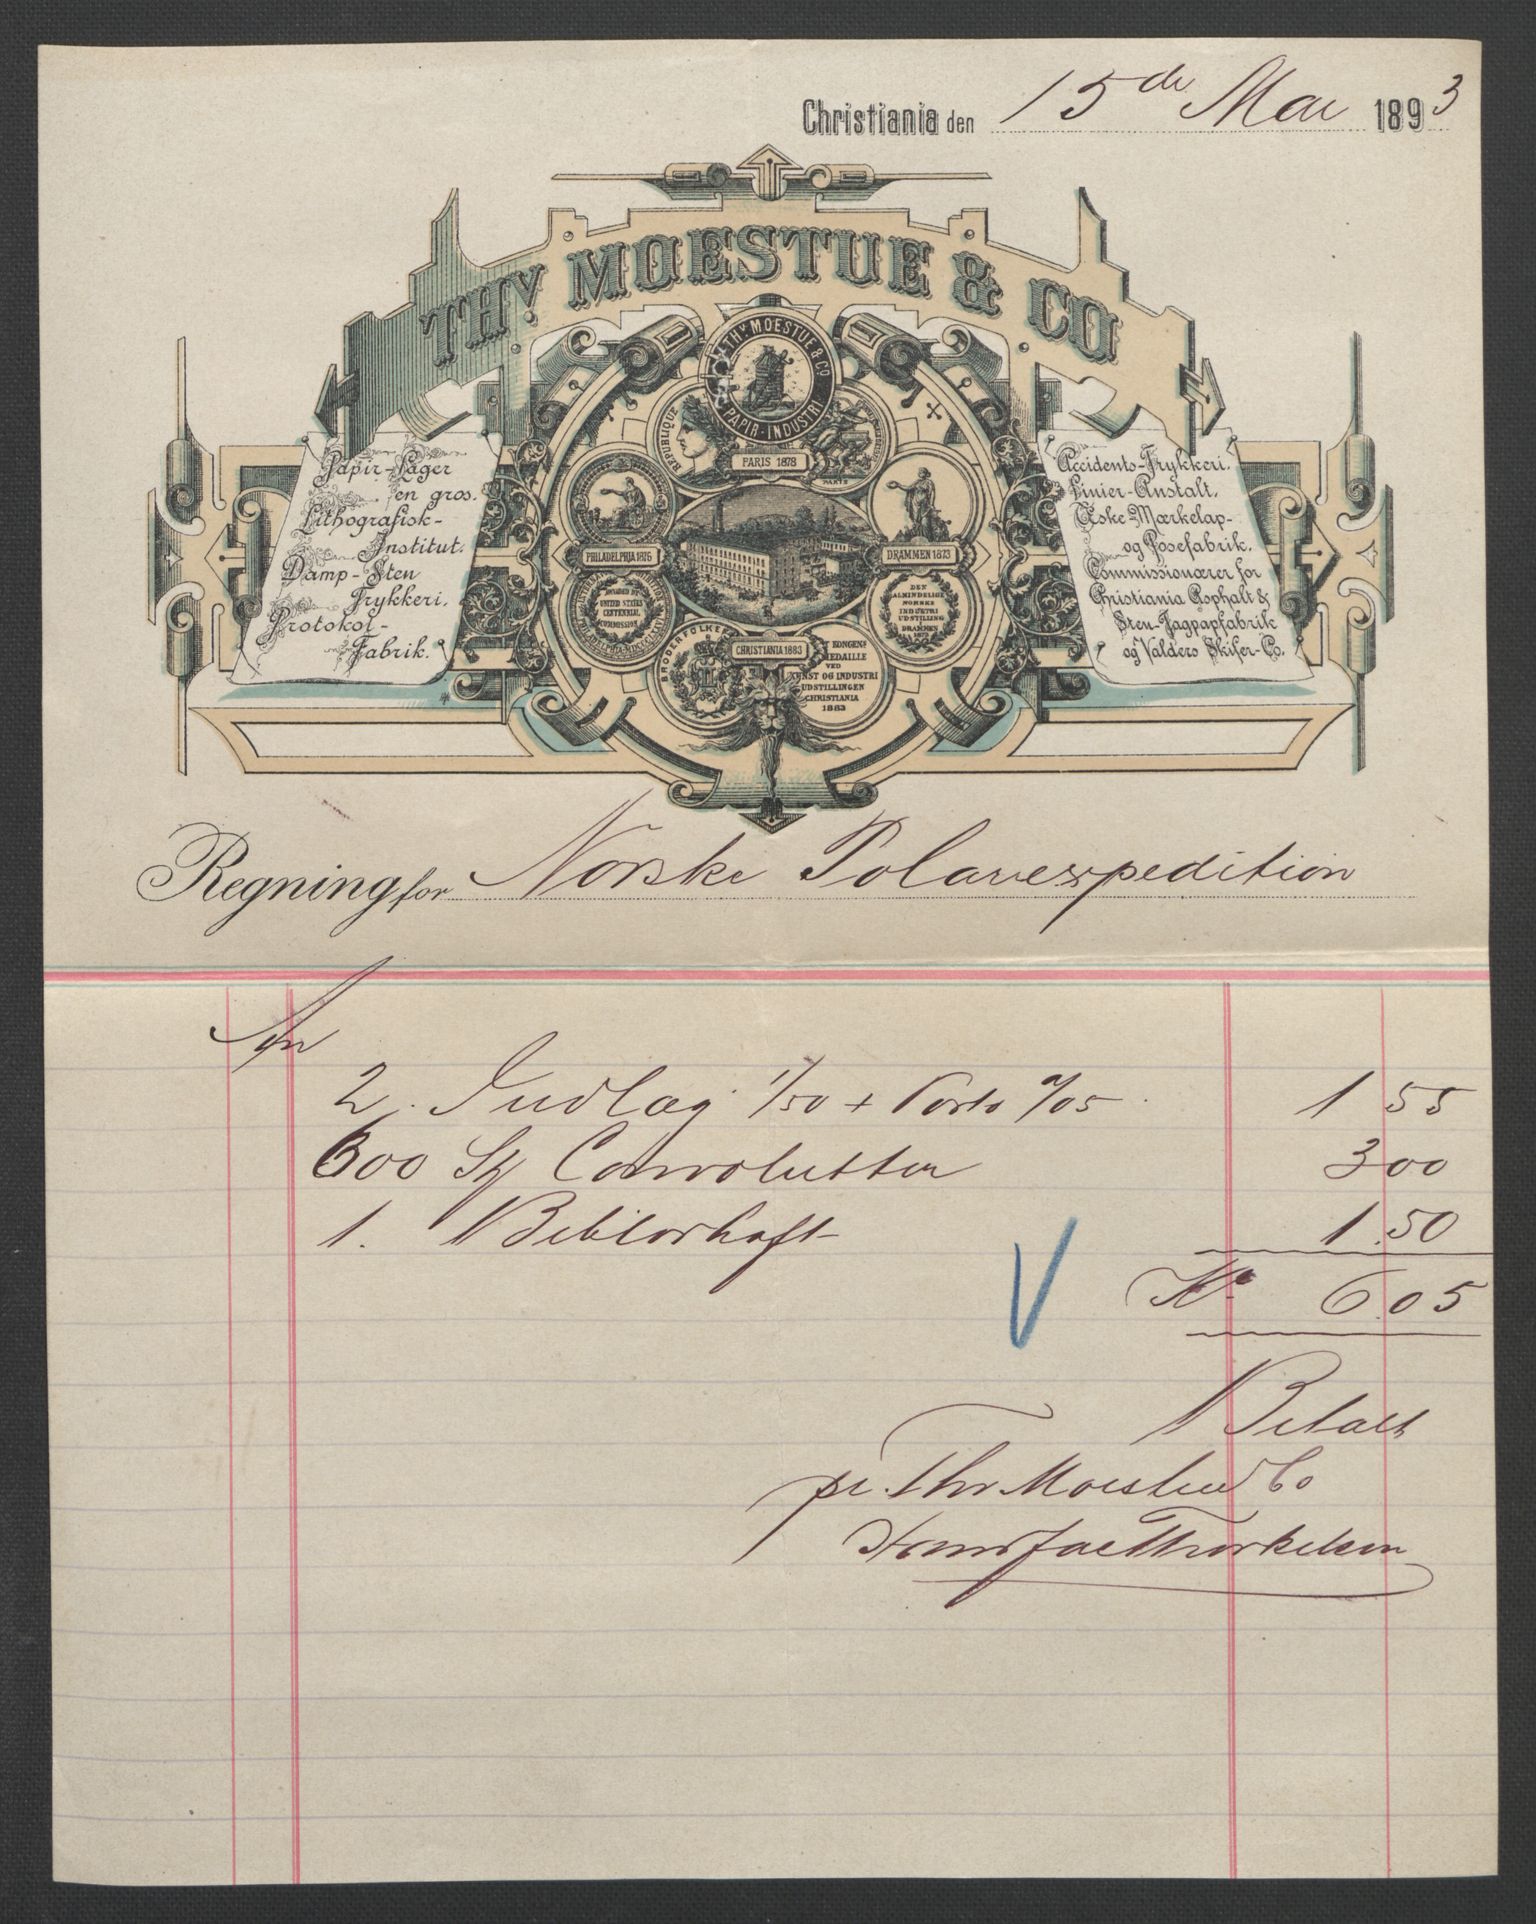 Christiania den 15de Mai 1893
THV MOESTUE & CO
THV MOESTUE & CO
PAPIR-INDUSTRI
RÉPUBLIQUE
PARIS
PARIS 1878
PHILADELPHIA 1876
DRAMMEN 1873
AWARDED BY
UNITED STATES
CENTENNIAL
COMMISSION
DEN
ALMINDELIGE
NORSKE
INDUSTRI
UDSTILLING
I
DRAMMEN
1873
CHRISTIANIA 1883
BRODERFOLKE
KONGENS
MEDAILLE
VED
KUNST OG INDUSTRI
UDSTILLINGEN
CHRISTIANIA
1883
Papir-Lager
en gros.
Lithografisk-
Institut.
Damp-Sten
Trykkeri.
Protokol-
Fabrik.
Accidents-Trykkeri.
Linier-Anstalt.
Æske-Mærkelap-
og Posefabrik.
Commissionærer for
Christiania Asphalt &
Sten-Tagpapfabrik
og Valders Skifer-Co.
Regning for Norske Polarexpedition
2. Indlæg 1/50 + Porto "/05 1 55
600 St Convolutter 3 00
1. Bibliorhaft 1.50
Kr. 6.05
Betalt
pr. Thv Moestue & Co
Thorkelsen